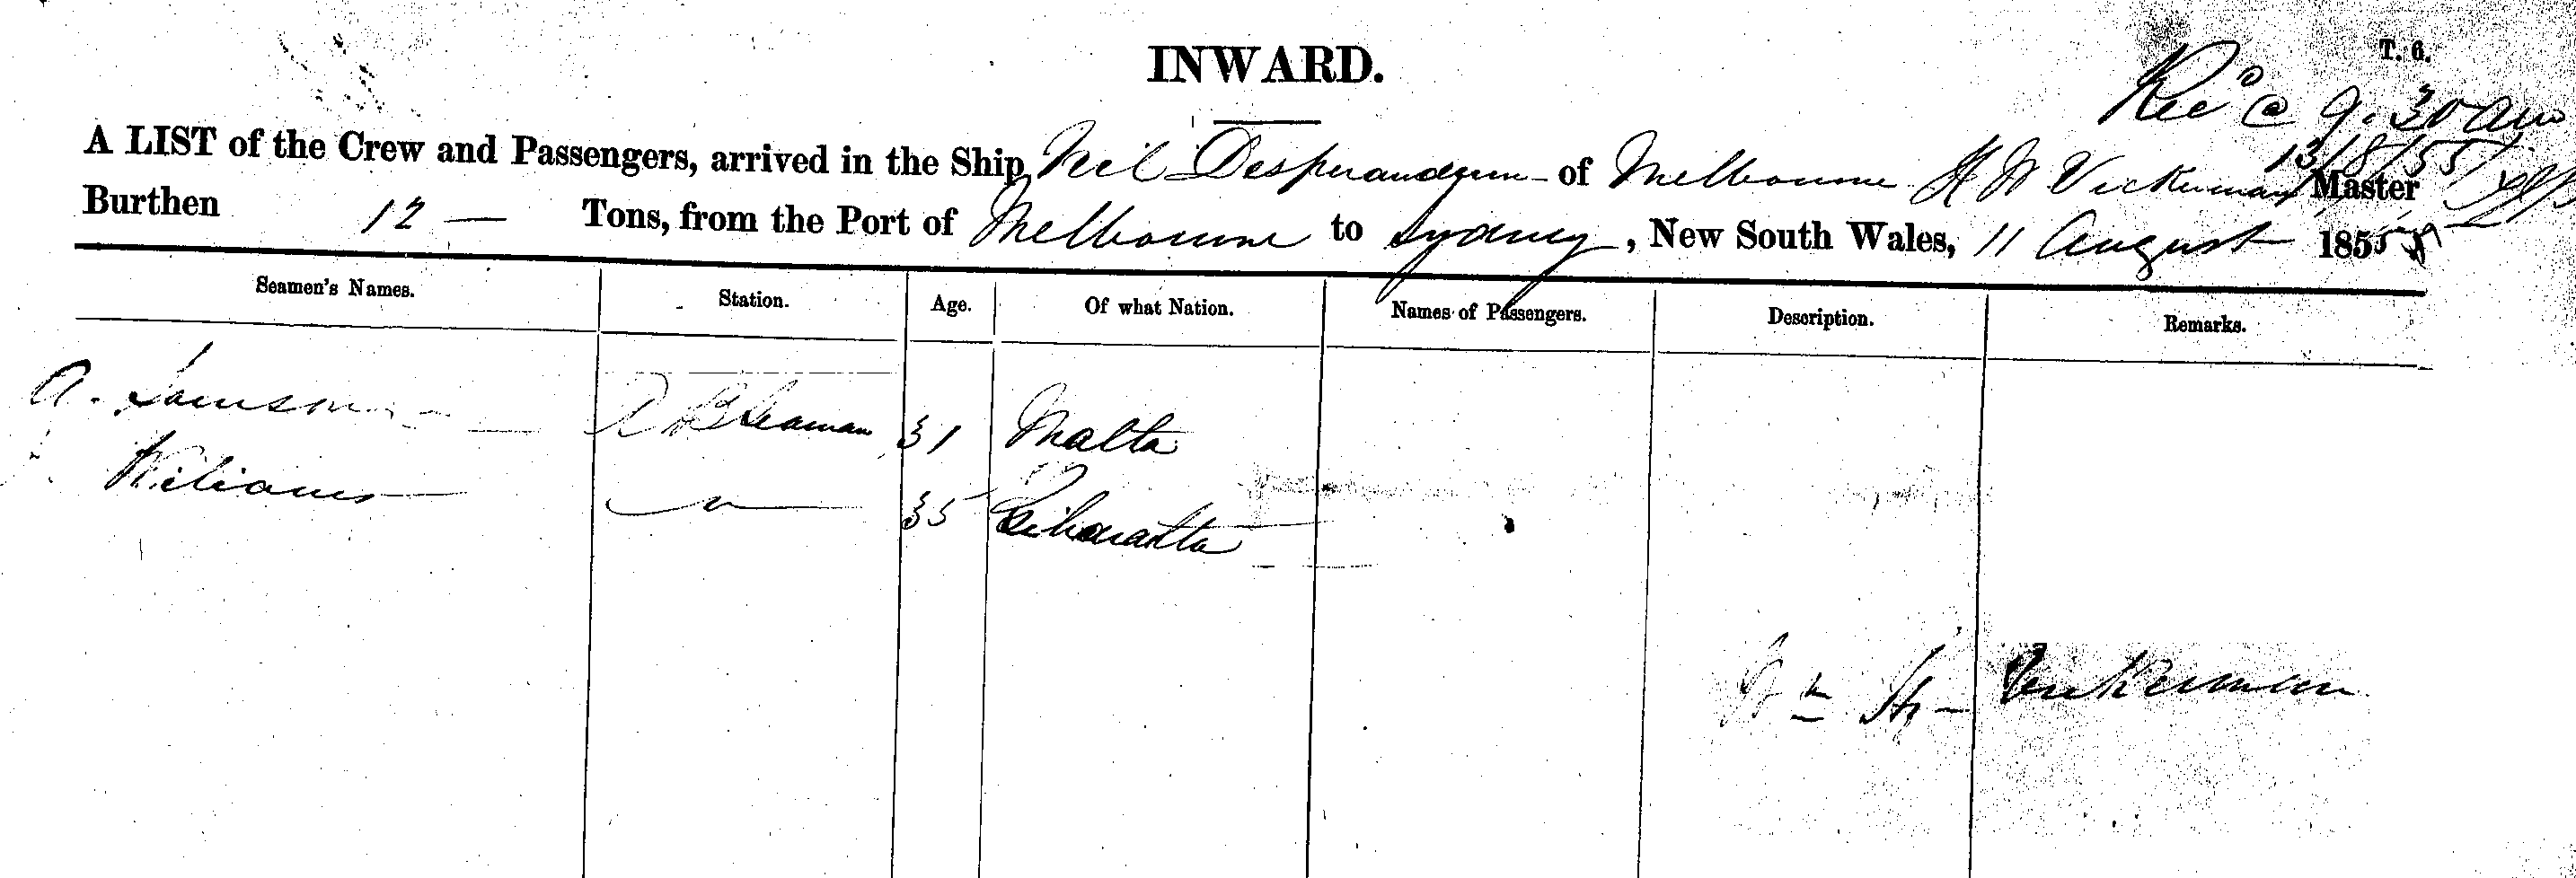 INWARD.
T. 6.
Recd @ 9.30 am
13/8/55
A LIST of the Crew and Passengers, arrived in the Ship Nil Desperandum of Melbourne H W Vickerman Master
Burthen 12 — Tons, from the Port of Melbourne to Sydney, New South Wales, 11 August 1855
Seamen's Names. Station. Age. Of what Nation. Names of Passengers. Description. Remarks.
A. A B Seaman 31 Malta
Wiliams 35
Wm Hy Vickerman